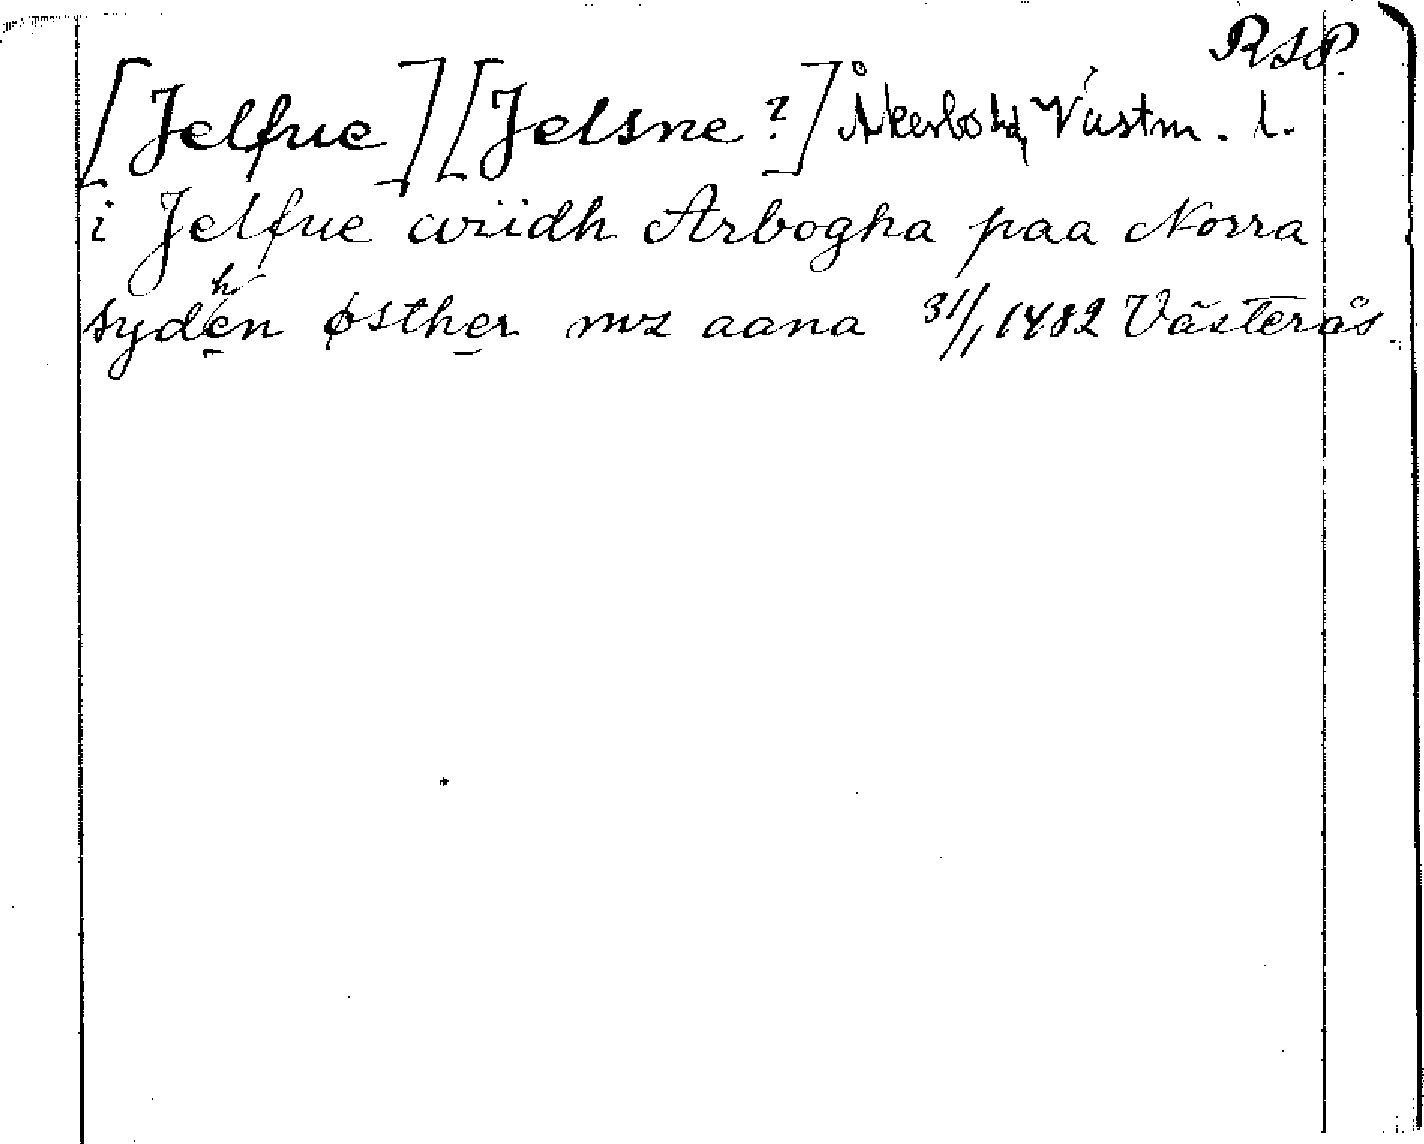 RAP.
[Jelfue] [Jelsne ?] Åkerbo hd, Västm. l.
i Jelfue wiidh Arbogha paa Norra
sydhen østher mz aana 31/1 1482 Västerås